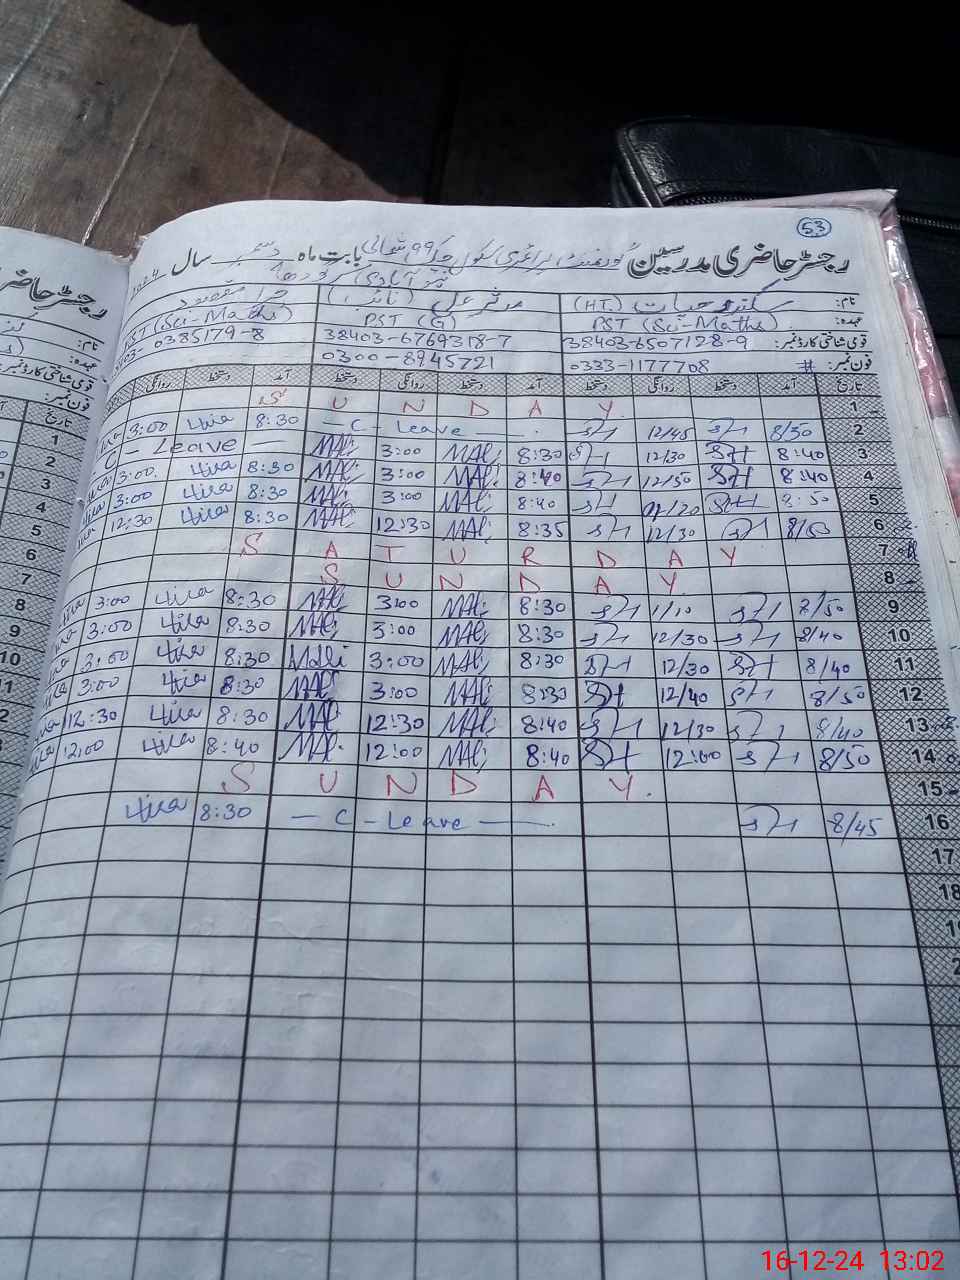 53
رجسٹر حاضری مدرسین گورنمنٹ پرائمری سکول چک 99 شمالی بابت ماہ دسمبر سال 2024
نیو آبادی سرگودھا
نام: سکندر حیات (HT) مدثر علی (نائب) حرا مقصود
عہدہ: PST (Sci-Maths) PST (G) PST (Sci-Maths)
قومی شناختی کارڈ نمبر: 38403-6507128-9 38403-6769318-7 0385179-8
فون نمبر: # 0333-1177708 0300-8945721
تاریخ آمد دستخط روانگی دستخط آمد دستخط روانگی دستخط آمد دستخط روانگی
1 S U N D A Y
2 8/50 12/45 — C - Leave — 8:30 Hira 3:00
3 8:40 12/30 8:30 MAli 3:00 MAli C - Leave —
4 8:40 12/50 8:40 MAli 3:00 MAli 8:30 Hira 3:00
5 8:50 8:40 MAli 3:00 MAli 8:30 Hira 3:00
6 8/50 12/30 8:35 MAli 12:30 MAli 8:30 Hira 12:30
7 S A T U R D A Y
8 S U N D A Y
9 1/10 8:30 MAli 3:00 MAli 8:30 Hira 3:00
10 8/40 12/30 8:30 MAli 3:00 MAli 8:30 Hira 3:00
11 8/40 12/30 8:30 MAli 3:00 MAli 8:30 Hira 3:00
12 8/50 12/40 8:30 MAli 3:00 MAli 8:30 Hira 3:00
13 8/40 12/30 8:40 MAli 12:30 MAli 8:30 Hira 12:30
14 8/50 12:00 8:40 MAli 12:00 MAli 8:40 Hira 12:00
15 S U N D A Y.
16 8/45 — C - Leave — 8:30 Hira
17
18
رجسٹر حاضر
نام:
عہدہ:
قومی شناختی کارڈ نمبر:
فون نمبر:
تاریخ
1
2
3
4
5
6
7
8
9
10
11
16-12-24 13:02